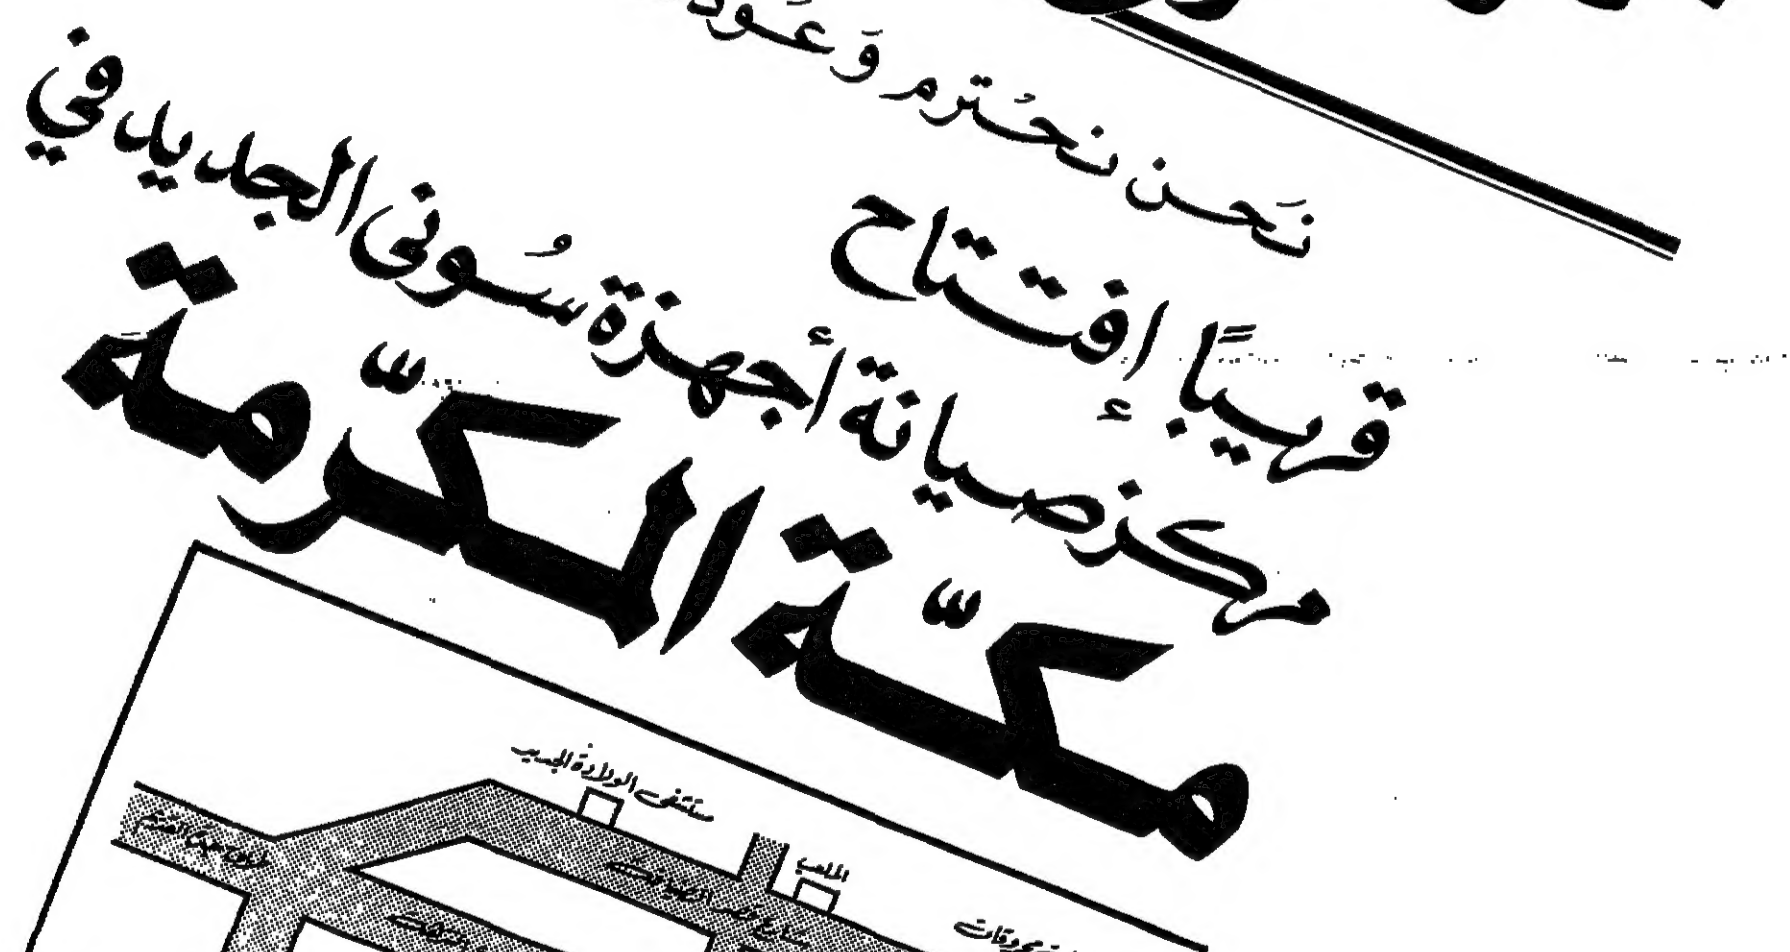 نَحن نحُترم وَعُود
قريبًا إفتتاح
مركز صيانة أجهزة سُونى الجديد في
مكّة المكرّمة
مستشفى الولادة الجديد
الملعب
شارع قصر الضيافة